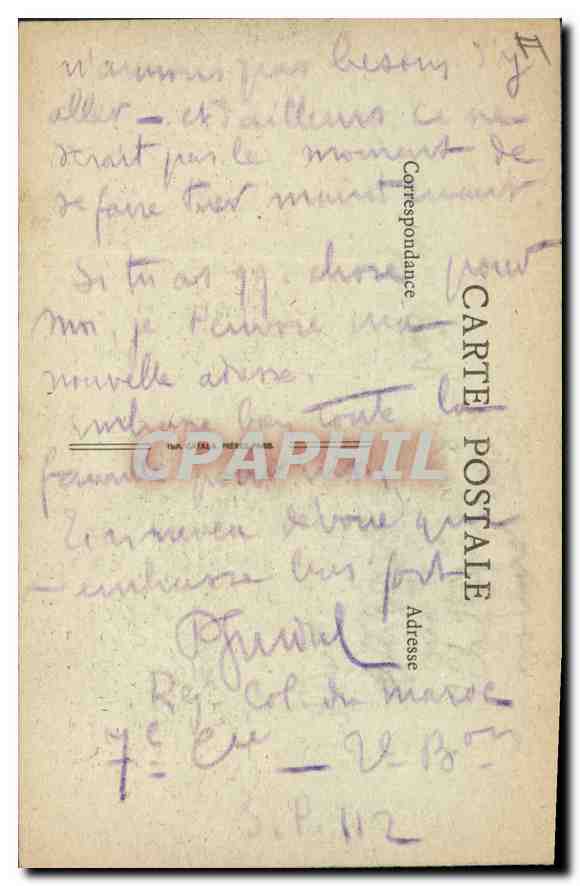 II
n'aurons pas besoin d'y
aller — et d'ailleurs ce ne
serait pas le moment de
se faire tuer maintenant
Si tu as qq. chose pour
moi, je t'envoie ma
nouvelle adresse.
embrasse bien toute la
famille pour moi
Ton neveu dévoué qui
embrasse bien fort
Reg. Col. du Maroc
7e Cie — 2e Bon
S.P. 112
CARTE POSTALE
Correspondance
Adresse
IMP. CATALA FRÈRES, PARIS
CPAPHIL